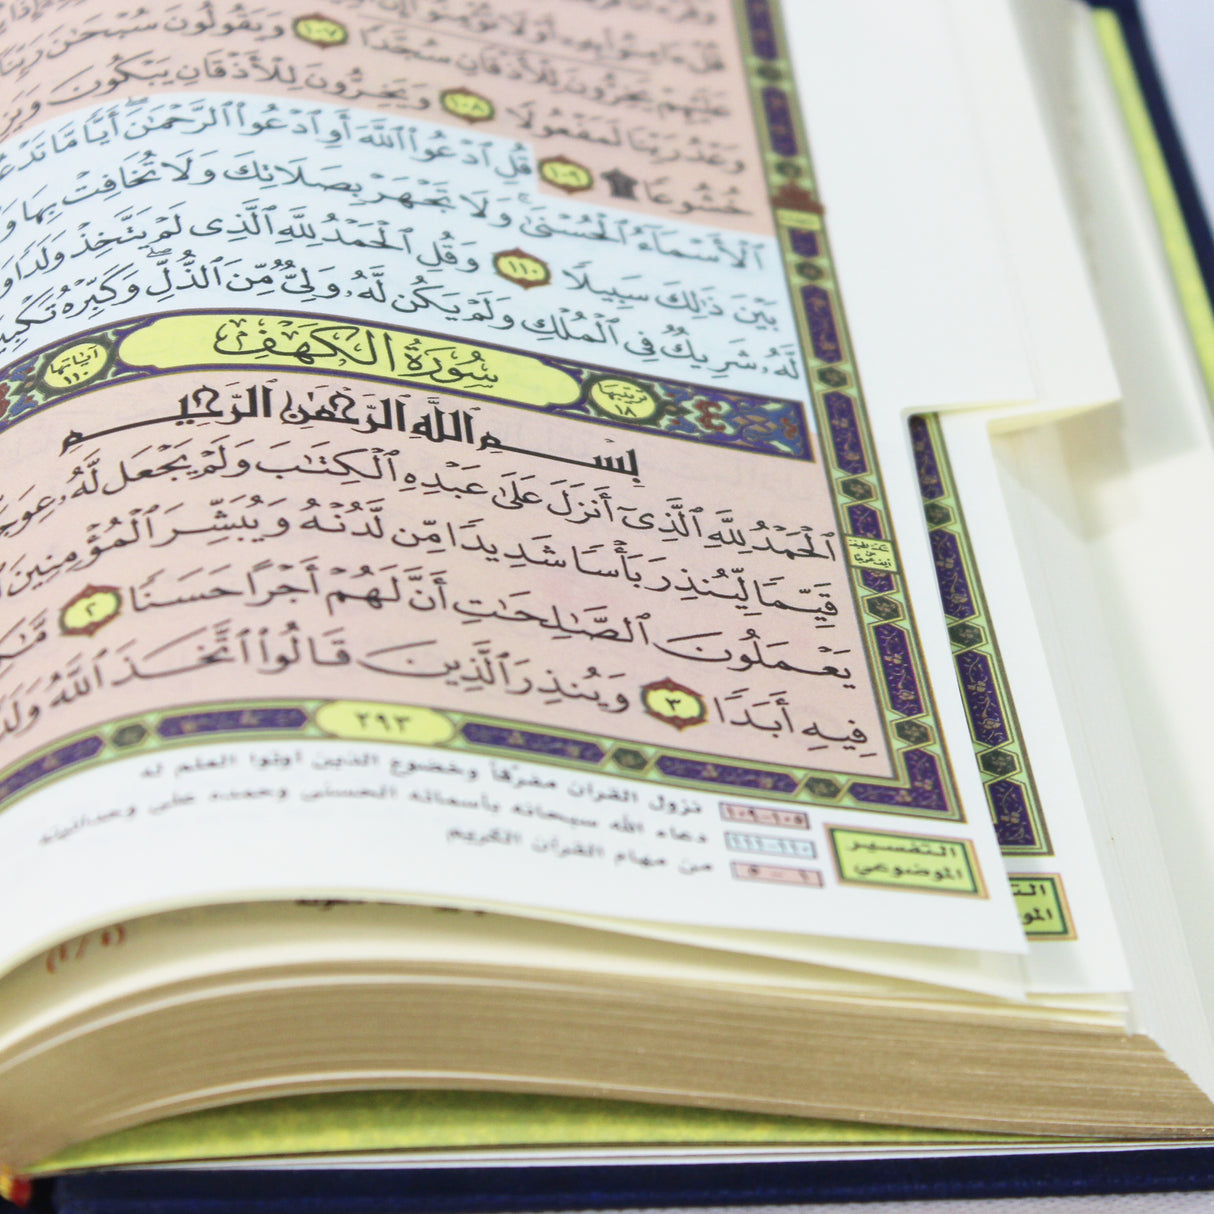 قُلْ ءَامِنُوا۟ بِهِۦٓ أَوْ لَا تُؤْمِنُوٓا۟ إِنَّ
عَلَيْهِمْ يَخِرُّونَ لِلْأَذْقَانِ سُجَّدًا ١٠٧ وَيَقُولُونَ سُبْحَٰنَ رَبِّنَآ إِن
وَعْدُ رَبِّنَا لَمَفْعُولًا ١٠٨ وَيَخِرُّونَ لِلْأَذْقَانِ يَبْكُونَ
خُشُوعًا ۩ ١٠٩ قُلِ ٱدْعُوا۟ ٱللَّهَ أَوِ ٱدْعُوا۟ ٱلرَّحْمَٰنَ ۖ أَيًّا مَّا
ٱلْأَسْمَآءُ ٱلْحُسْنَىٰ ۚ وَلَا تَجْهَرْ بِصَلَاتِكَ وَلَا تُخَافِتْ بِهَا
بَيْنَ ذَٰلِكَ سَبِيلًا ١١٠ وَقُلِ ٱلْحَمْدُ لِلَّهِ ٱلَّذِى لَمْ يَتَّخِذْ وَلَدًا
لَّهُۥ شَرِيكٌ فِى ٱلْمُلْكِ وَلَمْ يَكُن لَّهُۥ وَلِىٌّ مِّنَ ٱلذُّلِّ ۖ وَكَبِّرْهُ
ترتيبها ١٨ سُورَةُ الكَهْفِ آياتها ١١٠
بِسْمِ ٱللَّهِ ٱلرَّحْمَٰنِ ٱلرَّحِيمِ
ٱلْحَمْدُ لِلَّهِ ٱلَّذِىٓ أَنزَلَ عَلَىٰ عَبْدِهِ ٱلْكِتَٰبَ وَلَمْ يَجْعَل لَّهُۥ
قَيِّمًا لِّيُنذِرَ بَأْسًا شَدِيدًا مِّن لَّدُنْهُ وَيُبَشِّرَ ٱلْمُؤْمِنِينَ
يَعْمَلُونَ ٱلصَّٰلِحَٰتِ أَنَّ لَهُمْ أَجْرًا حَسَنًا ٢
فِيهِ أَبَدًا ٣ وَيُنذِرَ ٱلَّذِينَ قَالُوا۟ ٱتَّخَذَ ٱللَّهُ
٢٩٣
التفسير الموضوعي
١٠٥-١٠٩ نزول القرآن مفرقاً وخضوع الذين أوتوا العلم له
١١٠-١١١ دعاء الله سبحانه بأسمائه الحسنى وحمده على وحدانيته
١-٥ من مهام القرآن الكريم